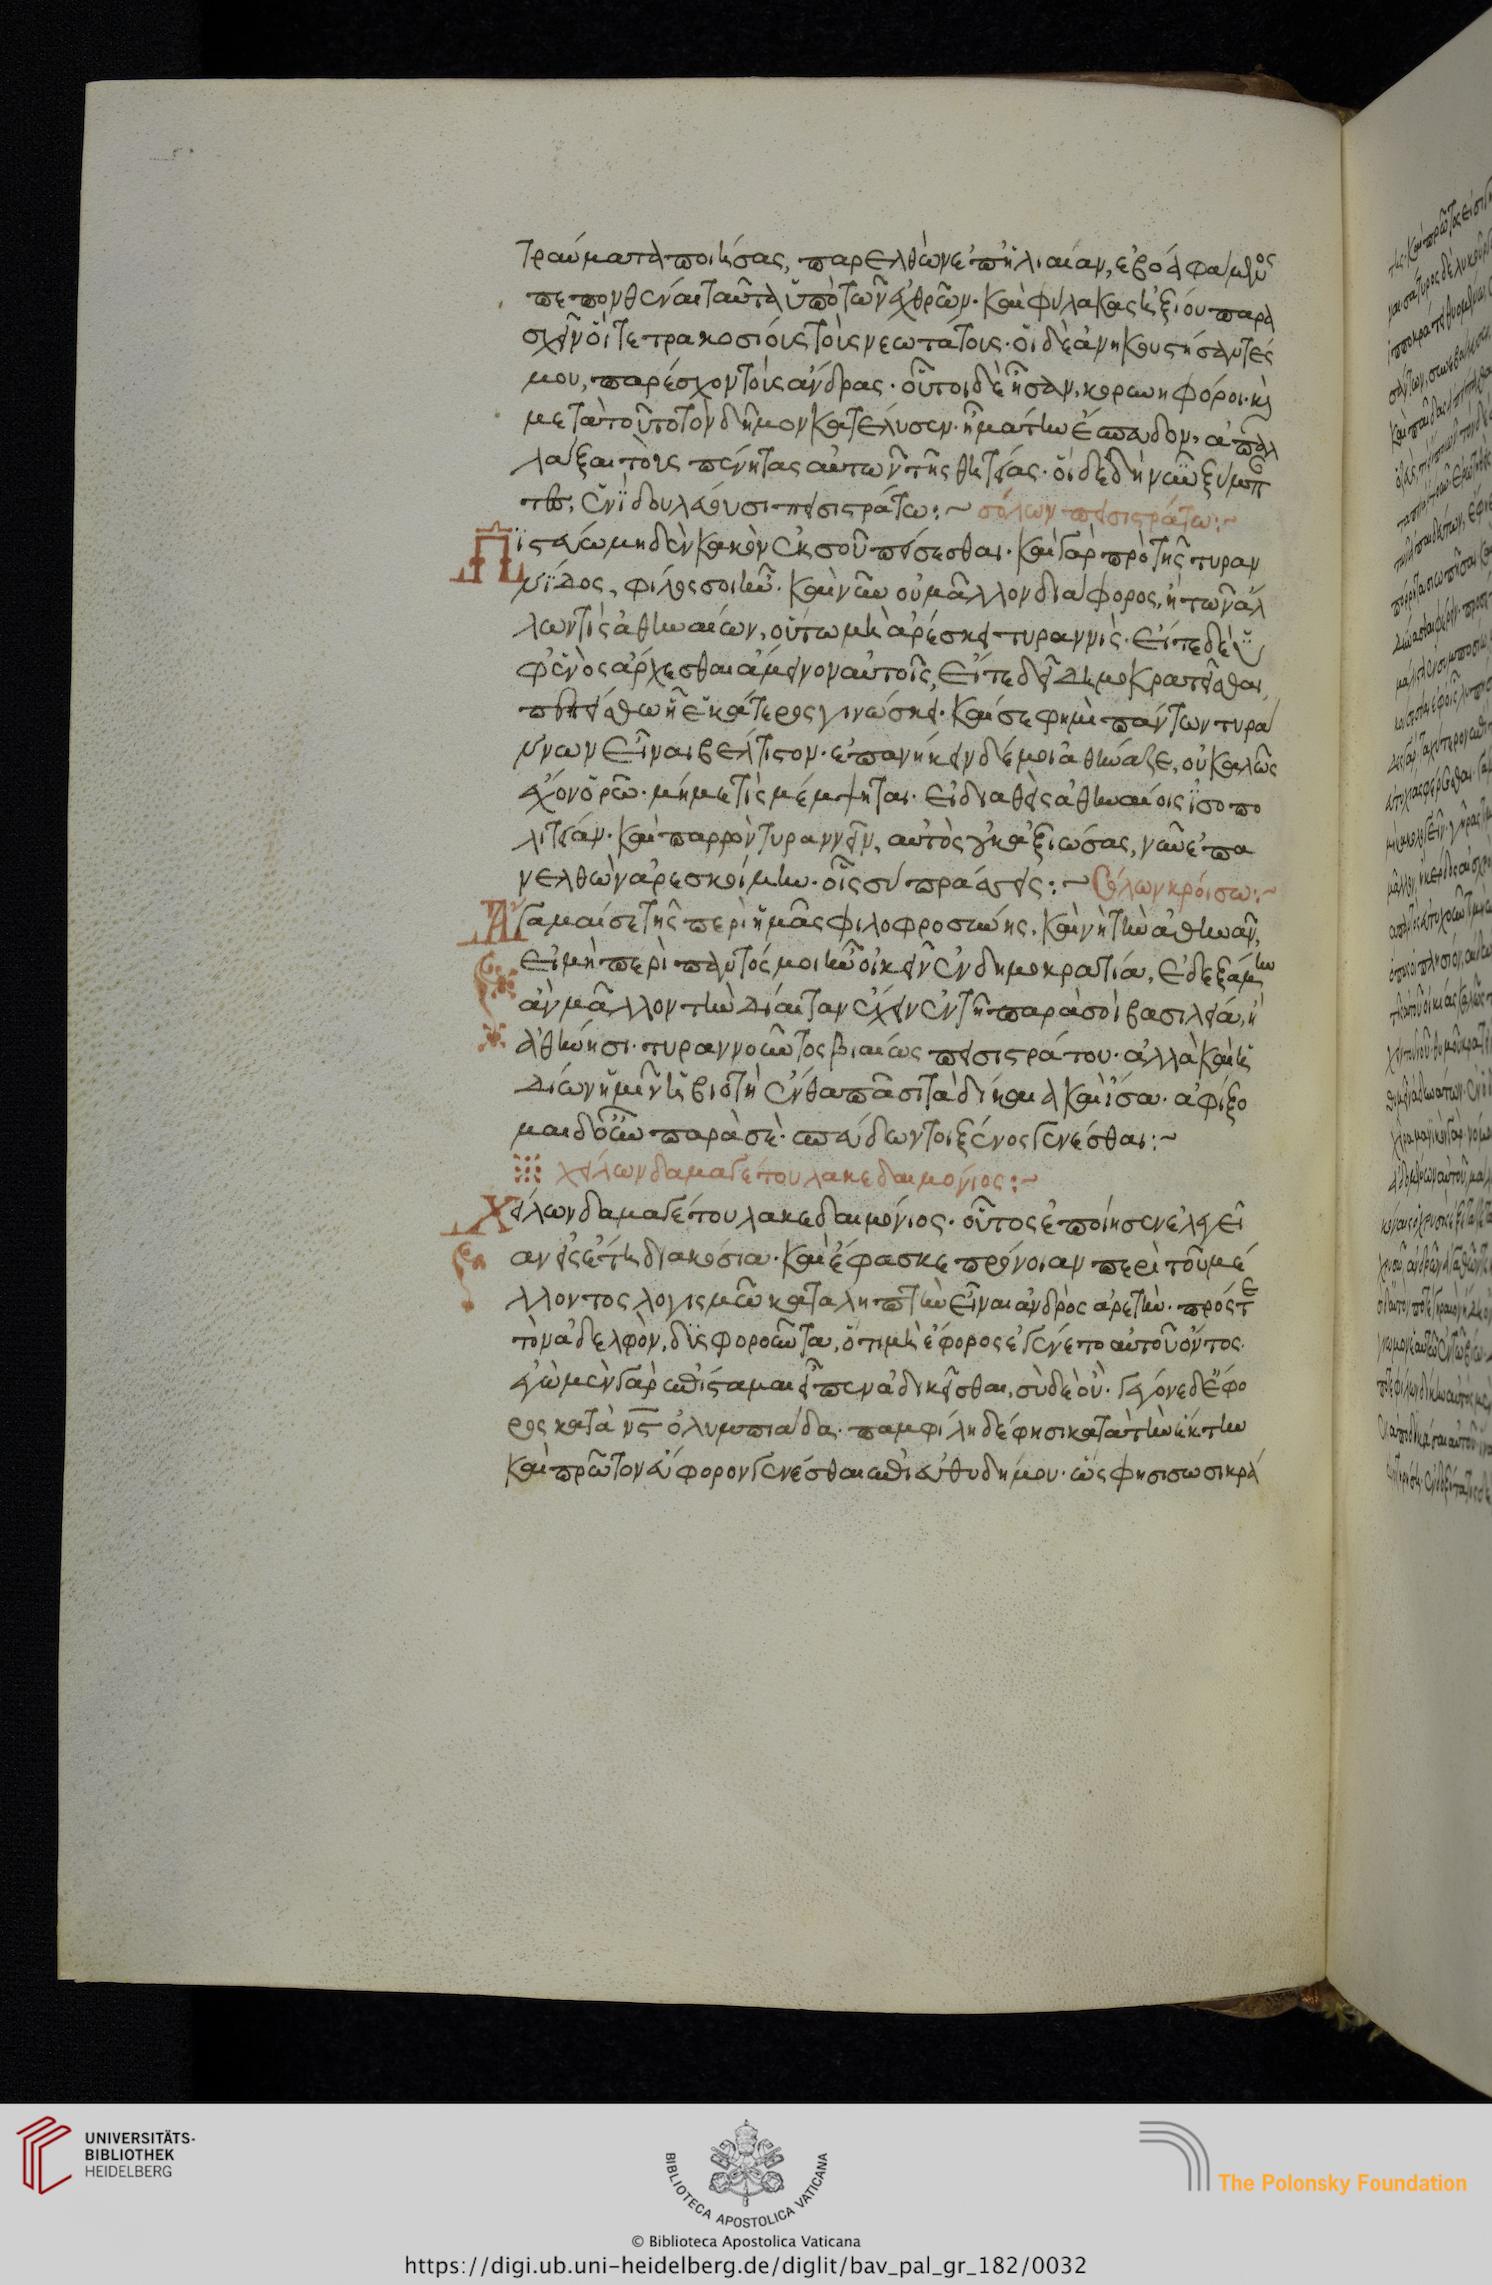 τραύματα ποιήσας, παρελθὼν ἐπ' ἡλιαίαν, ἐβόα φάμενος
πεπονθέναι ταῦτα ὑπὸ τῶν ἐχθρῶν. καὶ φύλακας ἠξίου παρα
σχεῖν οἱ τετρακοσίους τοὺς νεωτάτους. οἱ δὲ ἀνηκουστήσαντές
μου, παρέσχον τοὺς ἄνδρας. οὗτοι δὲ ἦσαν, κορωνηφόροι. καὶ
μετὰ τοῦτο τὸν δῆμον κατέλυσεν. ἦ μάτην ἔσπευδον, ἀπαλ
λάξαι τοὺς πένητας αὐτῶν τῆς θητείας. οἱ δὲ δὴ νῦν ξύμπαν
τες, ἑνὶ δουλεύουσι πεισιστράτω:~ σόλων πεισιστράτω:~
Πιστεύω μηδὲν κακὸν ἐκ σοῦ πείσεσθαι. καὶ γὰρ πρὸ τῆς τυραν
νίδος, φίλος σοι ἦν. καὶ νῦν οὐ μᾶλλον διάφορος, ἢ τῶν ἀλ
λων τὶς ἀθηναίων, οὕτω μὴ ἀρέσκει τυραννὶς. εἴτε δὲ ὑ
φ' ἑνὸς ἄρχεσθαι ἄμεινον αὐτοῖς, εἴτε δεῖ δημοκρατεῖσθαι,
πεπείσθω ἧ ἑκάτερος γινώσκει. καί σε φημὶ πάντων τυρά
ννων εἶναι βέλτιστον. ἐπανήκειν δέ μοι ἀθήναζε, οὐ καλῶς
ἔχον ὁρῶ. μή με τὶς μέμψηται. εἰ διαθεὶς ἀθηναίοις ἰσοπο
λιτείαν. καὶ παρρὸν τυραννεῖν, αὐτὸς οὐκ ἀξιώσας, νῦν ἐπα
νελθὼν ἀρεσκοίμην. οἷς σύ πράσσεις:~ Σόλων κροίσω:~
Ἄγαμαί σε τῆς περὶ ἡμᾶς φιλοφροσύνης. καὶ νὴ τὴν ἀθηνᾶν,
εἰ μὴ περὶ παντός μοι ἦν οἰκεῖν ἐν δημοκρατία, ἐδεξάμην
ἂν μᾶλλον τὴν δίαιταν ἔχειν ἐν τῆ παρὰ σοὶ βασιλεία, ἢ
ἀθήνησι. τυραννοῦντος βιαίως πεισιστράτου. ἀλλὰ καὶ ἡ
δίων ἡμῖν ἡ βιοτὴ ἔνθα πᾶσι τὰ δίκαια καὶ ἴσα. ἀφίξο
μαι δ' οὖν παρὰ σὲ. σπεύδων τοι ξένος γενέσθαι:~
χείλων δαμαγέτου λακεδαιμόνιος:~
Χείλων δαμαγέτου λακεδαιμόνιος. οὗτος ἐποίησεν ἐλεγεῖ
α εἰς ἔπη διακόσια. καὶ ἔφασκε πρόνοιαν περὶ τοῦ μέ
λλοντος λογισμῶ καταληπτὴν εἶναι ἀνδρὸς ἀρετὴν. πρός τε
τὸν ἀδελφὸν, δυσφοροῦντα, ὅτι μὴ ἔφορος ἐγένετο αὐτοῦ ὄντος.
ἐγὼ μὲν γὰρ ἐπίσταμαι εἶπεν ἀδικεῖσθαι, σὺ δὲ οὔ. γέγονε δὲ ἔφο
ρος κατὰ νϛ ὀλυμπιάδα. παμφίλη δέ φησι κατὰ τὴν ἕκτην
καὶ πρῶτον ἔφορον γενέσθαι ἐπὶ εὐθυδήμου. ὥς φησι σωσικρά
UNIVERSITÄTS-
BIBLIOTHEK
HEIDELBERG
BIBLIOTECA APOSTOLICA VATICANA
© Biblioteca Apostolica Vaticana
The Polonsky Foundation
https://digi.ub.uni-heidelberg.de/diglit/bav_pal_gr_182/0032